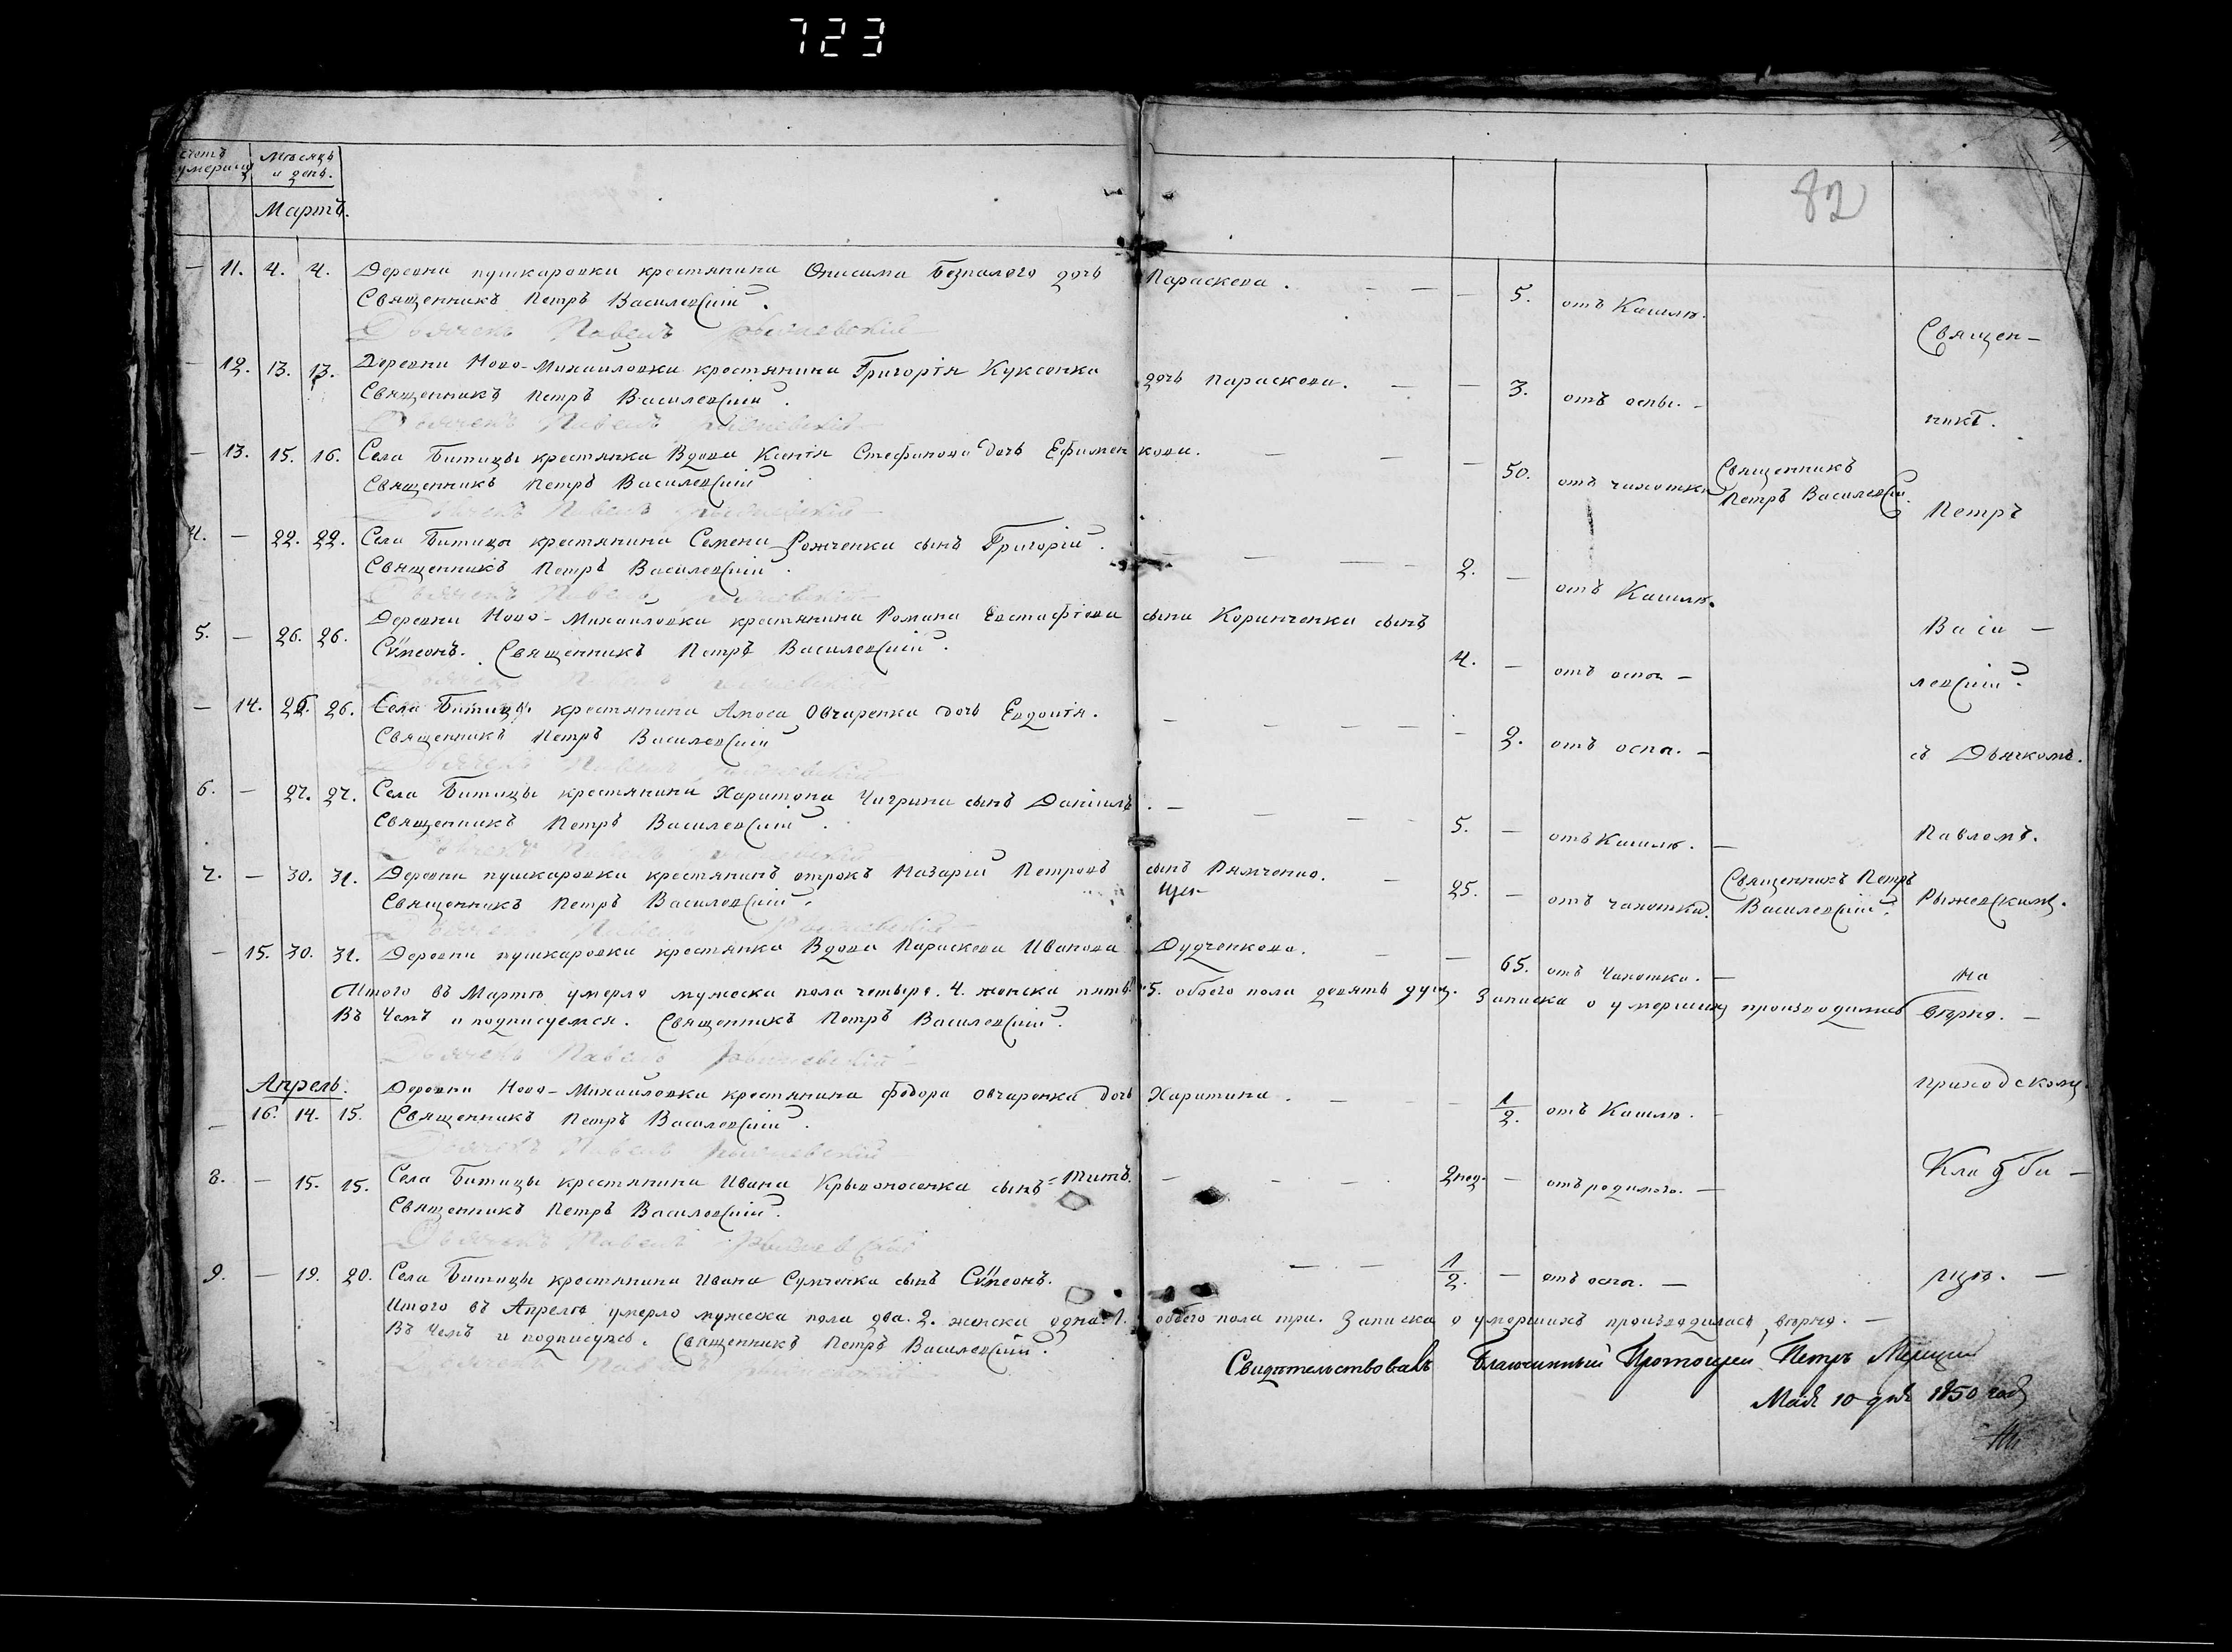 723
82
счетъ умерших
Мѣсяцъ и день.
Мартъ.
— 11. 4. 4. Деревни пушкаровки крестянина Онисима Безпалого дочь Параскева. — — — 5. отъ Кашлю.
Священникъ Петръ Василевскій.
Дьячекъ Павелъ Рыжевскій
Священ–
— 12. 13. 13. Деревни Ново-Михайловки крестянина Григорія Куксенка дочь параскева. — — 3. отъ оспы. –
Священникъ Петръ Василевскій.
Дьячекъ Павелъ Рыжевскій
никъ.
— 13. 15. 16. Села Битицы крестянка Вдова Ксенія Стефанова дочь Ефименкова. — — — 50. отъ чахотки Священникъ Петръ Василевскій.
Священникъ Петръ Василевскій
Дьячекъ Павелъ Рыжевскій
Петръ
4. — 22. 22. Села Битицы крестянина Семена Рожченка сынъ Григорій. — — 2. — отъ Кашлю.
Священникъ Петръ Василевскій.
Дьячекъ Павелъ Рыжевскій
5. — 26. 26. Деревни Ново-Михайловки крестянина Романа Евстафіева сына Коринченка сынъ
Сѵмеонъ. Священникъ Петръ Василевскій. 4. — отъ оспы —
Васи —
Дьячекъ Павелъ Рыжевскій
левскій.
— 14. 26. 26. Села Битицы крестянина Амоса Овчаренка дочь Евдокія. — — — — 2. отъ оспы. —
Священникъ Петръ Василевскій
Дьячекъ Павелъ Рыжевскій
съ Дьячкомъ.
6. — 27. 27. Села Битицы крестянина Харитона Чигрина сынъ Даніилъ. — — — 5. — отъ Кашлю. —
Священникъ Петръ Василевскій.
Дьячекъ Павелъ Рыжевскій
Павломъ.
7. — 30. 31. Деревни пушкаровки крестянинъ отрокъ Назарій Петровъ сынъ Рямченко. — 25. — отъ чахотки. Священникъ Петръ Василевскій.
Священникъ Петръ Василевскій.
Дьячекъ Павелъ Рыжевскій
Рыжевскимъ.
— 15. 30. 31. Деревни пушкаровки крестянка Вдова Параскева Иванова Дудченкова. — — 65. отъ Чахотки. —
на
Итого въ Мартѣ умерло мужеска пола четыре. 4. женска пять 5. обоего пола девять душ. Записка о умершихъ производилась вѣрно. —
Въ Чемъ и подписуемся. Священникъ Петръ Василевскій.
Дьячекъ Павелъ Рыжевскій
Апрель.
— 16. 14. 15. Деревни Ново-Михайловки крестянина федора Овчаренка дочь Харитина. — — 1/2. отъ Кашлю. –
приходскомъ
Священникъ Петръ Василевскій.
Дьячекъ Павелъ Рыжевскій
Кладби —
8. — 15. 15. Села Битицы крестянина Ивана Крывоносенка сынъ Титъ. — — — 2 нед. — отъ родимого. —
Священникъ Петръ Василевскій.
Дьячекъ Павелъ Рыжевскій
9. — 19. 20. Села Битицы крестянина Ивана Сумченка сынъ Сѵмеонъ. — — 1/2. — отъ оспы. —
щѣ. —
Итого въ Апрелѣ умерло мужеска пола два. 2. женска одна. 1. обоего пола три. Записка о умершихъ производилась вѣрно. —
Въ Чемъ и подписуюсь. Священникъ Петръ Василевскій.
Дьячекъ Павелъ Рыжевскій
Свидѣтельствовалъ Благочинный Протоіерей Петръ
Маія 10 дня 1850 года